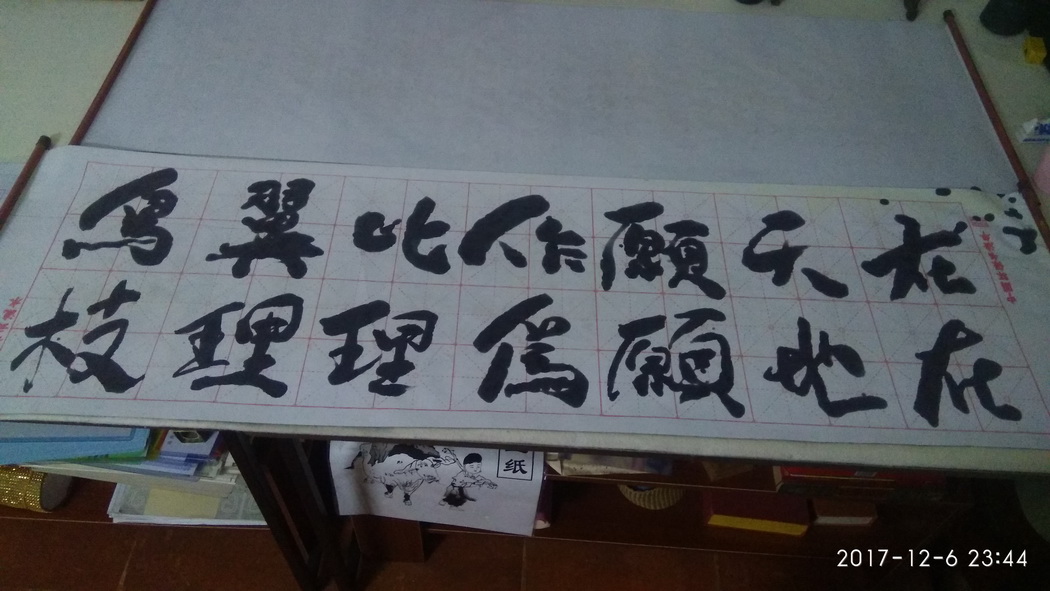 在天願作比翼鳥
在地願為理理枝
纸
2017-12-6 23:44